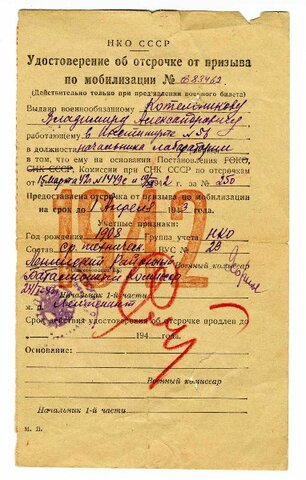 НКО СССР
Удостоверение об отсрочке от призыва
по мобилизации №
(Действительно только при пред'явлении военного билета)
Выдано военнообязанному Котельникову
Владимиру Александровичу
работающему в Институте №
в должности начальника лаборатории
в том, что ему на основании Постановления ГОКО,
СНК СССР, Комиссии при СНК СССР по отсрочкам
от 15 марта 42 г. за № 250
Предоставлена отсрочка от призыва по мобилизации
на срок до 1 апреля 1943 г.
942
Учетные признаки:
Год рождения 1908 Группа учета НКО
Состав ВУС №
Ленинский Районный Военный комиссар
Начальник 1-й части
Срок действия удостоверения об отсрочке продлен до
194 года.
Основание:
Военный комиссар
Начальник 1-й части
М. П.